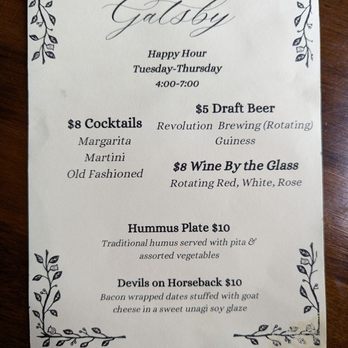 Gatsby
Happy Hour
Tuesday-Thursday
4:00-7:00
$8 Cocktails
Margarita
Martini
Old Fashioned
$5 Draft Beer
Revolution Brewing (Rotating)
Guiness
$8 Wine By the Glass
Rotating Red, White, Rose
Hummus Plate $10
Traditional humus served with pita &
assorted vegetables
Devils on Horseback $10
Bacon wrapped dates stuffed with goat
cheese in a sweet unagi soy glaze